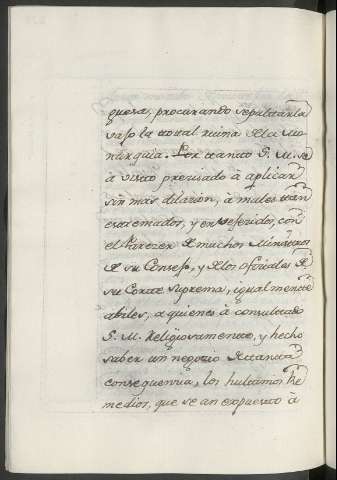 quesa, procurando sepultarla
bajo la total ruina de la Mo
narquia. Por tanto S. M. se
à visto precisado à aplicar
sin mas dilazion, à males tan
estremados, y embejezidos, con
el Parezer de muchos Ministros
de su Consejo, y de los ofiziales de
su Corte Suprema, igualmente
abiles, a quienes à consultado
S. M. Religiosamente, y hecho
saber un negozio de tanta
consequenzia, los hultimos Re
medios, que se an expuesto à